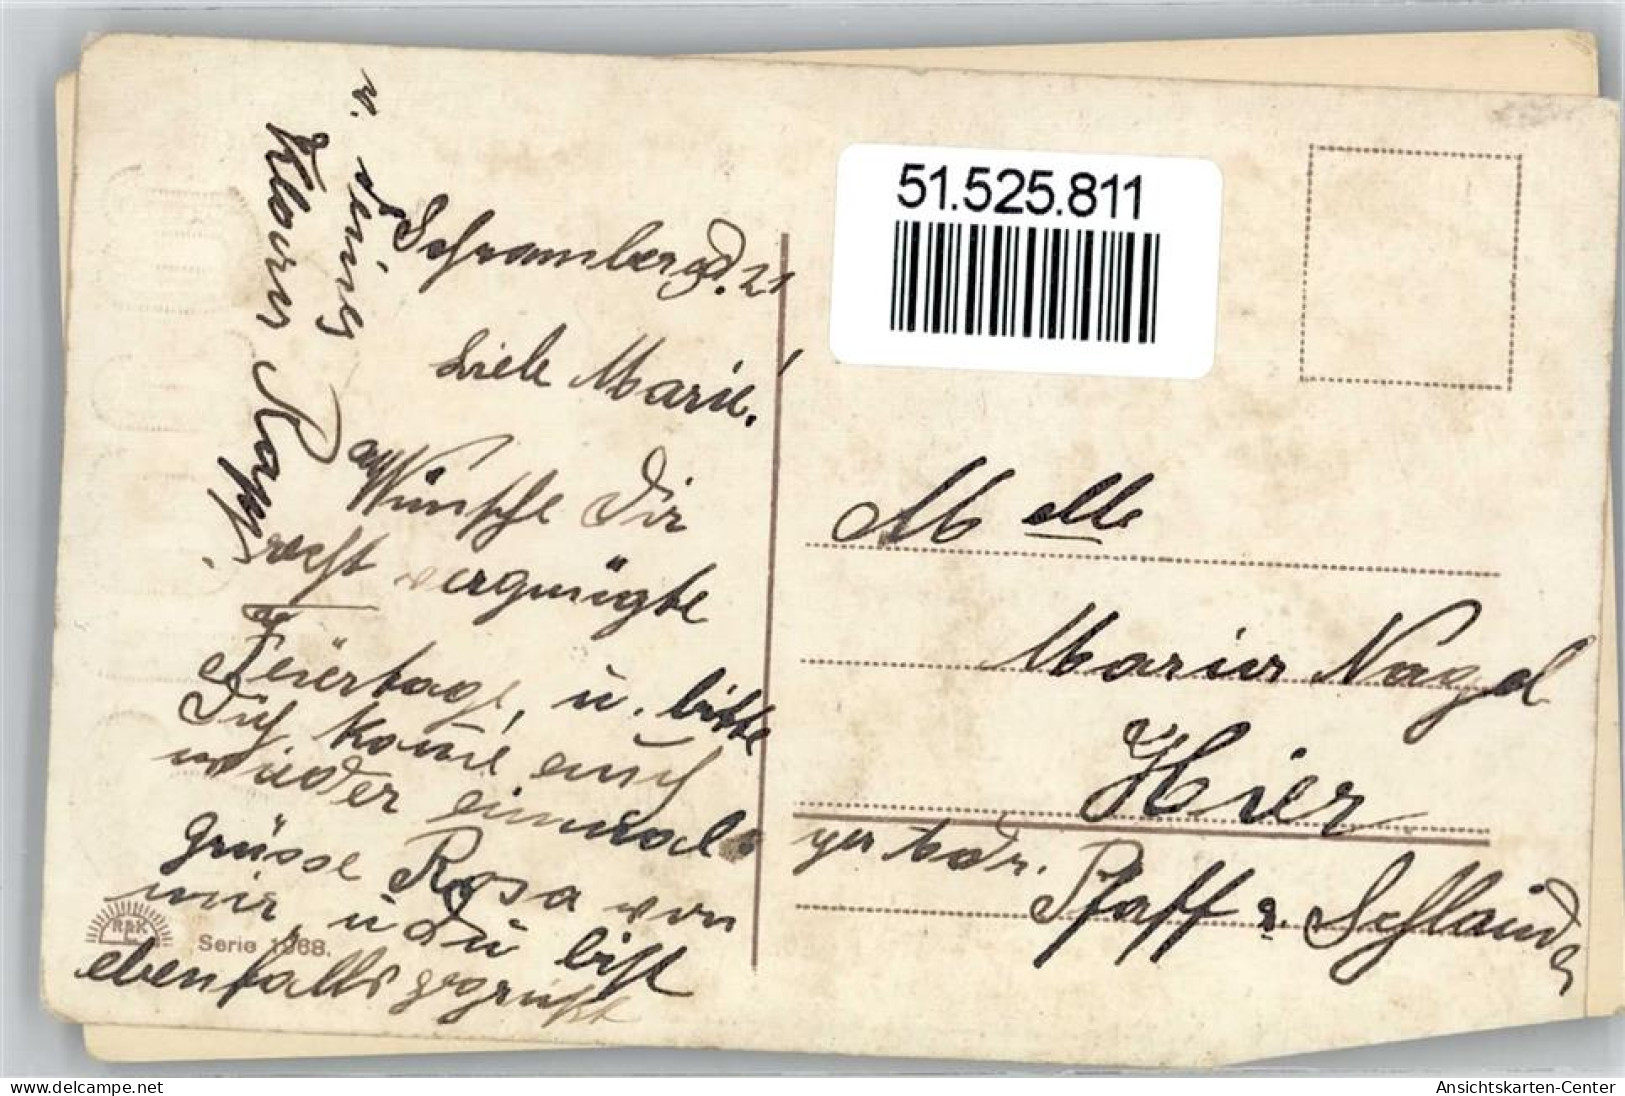 51.525.811
Schramberg d. 21
Liebe Marie!
Wünsche Dir
recht vergnügte
Feiertage, u. bitte
Dich komme auch
wieder einmal.
grüsse Rosa von
mir u Du bist
ebenfalls gegrüßt
v. deiner
Klara Rapp.
Mlle
Marie Nagel
Hier
per Adr. Pfaff &. Schlauder
Serie 1968.
delcampe.net
Ansichtskarten-Center